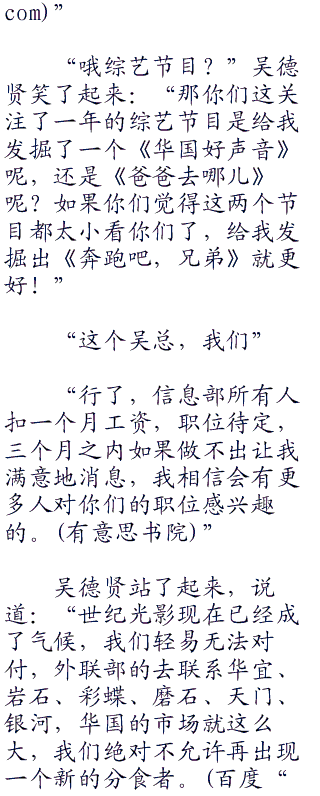 com)”
“哦综艺节目？”吴德
贤笑了起来：“那你们这关
注了一年的综艺节目是给我
发掘了一个《华国好声音》
呢，还是《爸爸去哪儿》
呢？如果你们觉得这两个节
目都太小看你们了，给我发
掘出《奔跑吧，兄弟》就更
好！”
“这个吴总，我们”
“行了，信息部所有人
扣一个月工资，职位待定，
三个月之内如果做不出让我
满意地消息，我相信会有更
多人对你们的职位感兴趣
的。(有意思书院)”
吴德贤站了起来，说
道：“世纪光影现在已经成
了气候，我们轻易无法对
付，外联部的去联系华宜、
岩石、彩蝶、磨石、天门、
银河，华国的市场就这么
大，我们绝对不允许再出现
一个新的分食者。(百度“